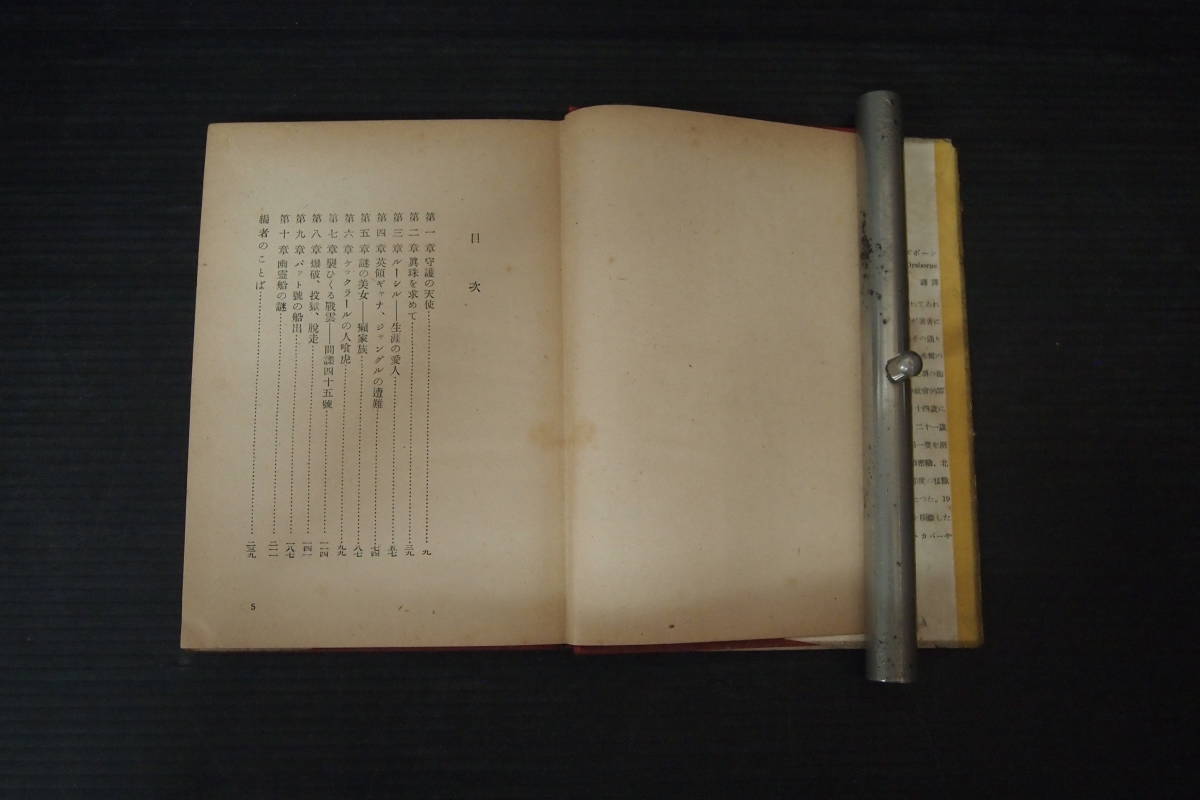 目次
第一章 守護の天使……九
第二章 眞珠を求めて……三九
第三章 ルーシル——生涯の愛人……五七
第四章 英領ギャナ、ジャングルの遭難……七四
第五章 謎の美女——癩家族……八七
第六章 ケックラールの人喰虎……九九
第七章 襲ひくる戰雲——間諜四十五號……一二四
第八章 爆破、投獄、脱走……一四一
第九章 パット號の船出……一八七
第十章 幽霊船の謎……二一一
編者のことば……二三九
5
ズボーン
Osborne
十四歳に
二十一歳